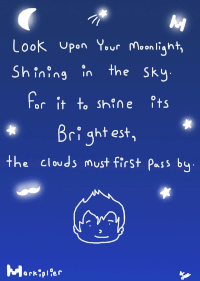 M
Look Upon Your Moonlight,
Shining in the sky.
For it to shine its
Brightest,
the clouds must first pass by.
Markiplier